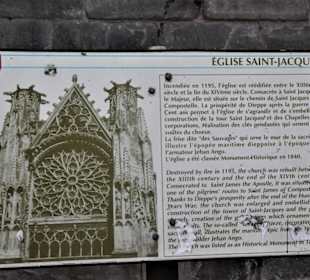 ÉGLISE SAINT-JACQU
Incendiée en 1195, l'église est réédifiée entre le XIII
siècle et la fin du XIVème siècle. Consacrée à Saint Jacques
le Majeur, elle est située sur le chemin de Saint Jacques
Compostelle. La prospérité de Dieppe après la guerre
Cent ans permet à l'église de s'agrandir et de s'embellir
construction de la tour Saint Jacques et des Chapelles
corporations, réalisation des clés pendantes qui ornent
voûtes du chœur.
La frise dite "des Sauvages" qui orne le mur de la
illustre l'épopée maritime dieppoise à l'époque
l'armateur Jehan Ango.
L'église a été classée Monument Historique en 1840.
Destroyed by fire in 1195, the church was rebuilt between
the XIIIth century and the end of the XIVth century
Consecrated to Saint James the Apostle, it was
one of the pilgrims' routes to Saint James of Compostela
Thanks to Dieppe's prosperity after the end of the Hundred
Years War, the church was enlarged and embellished
construction of the tower of Saint-Jacques and the
creation of the which ornament
vaults. The so-called
illustrates the maritime Epic from
Jehan Ango.
The church was listed as an Historical Monument in